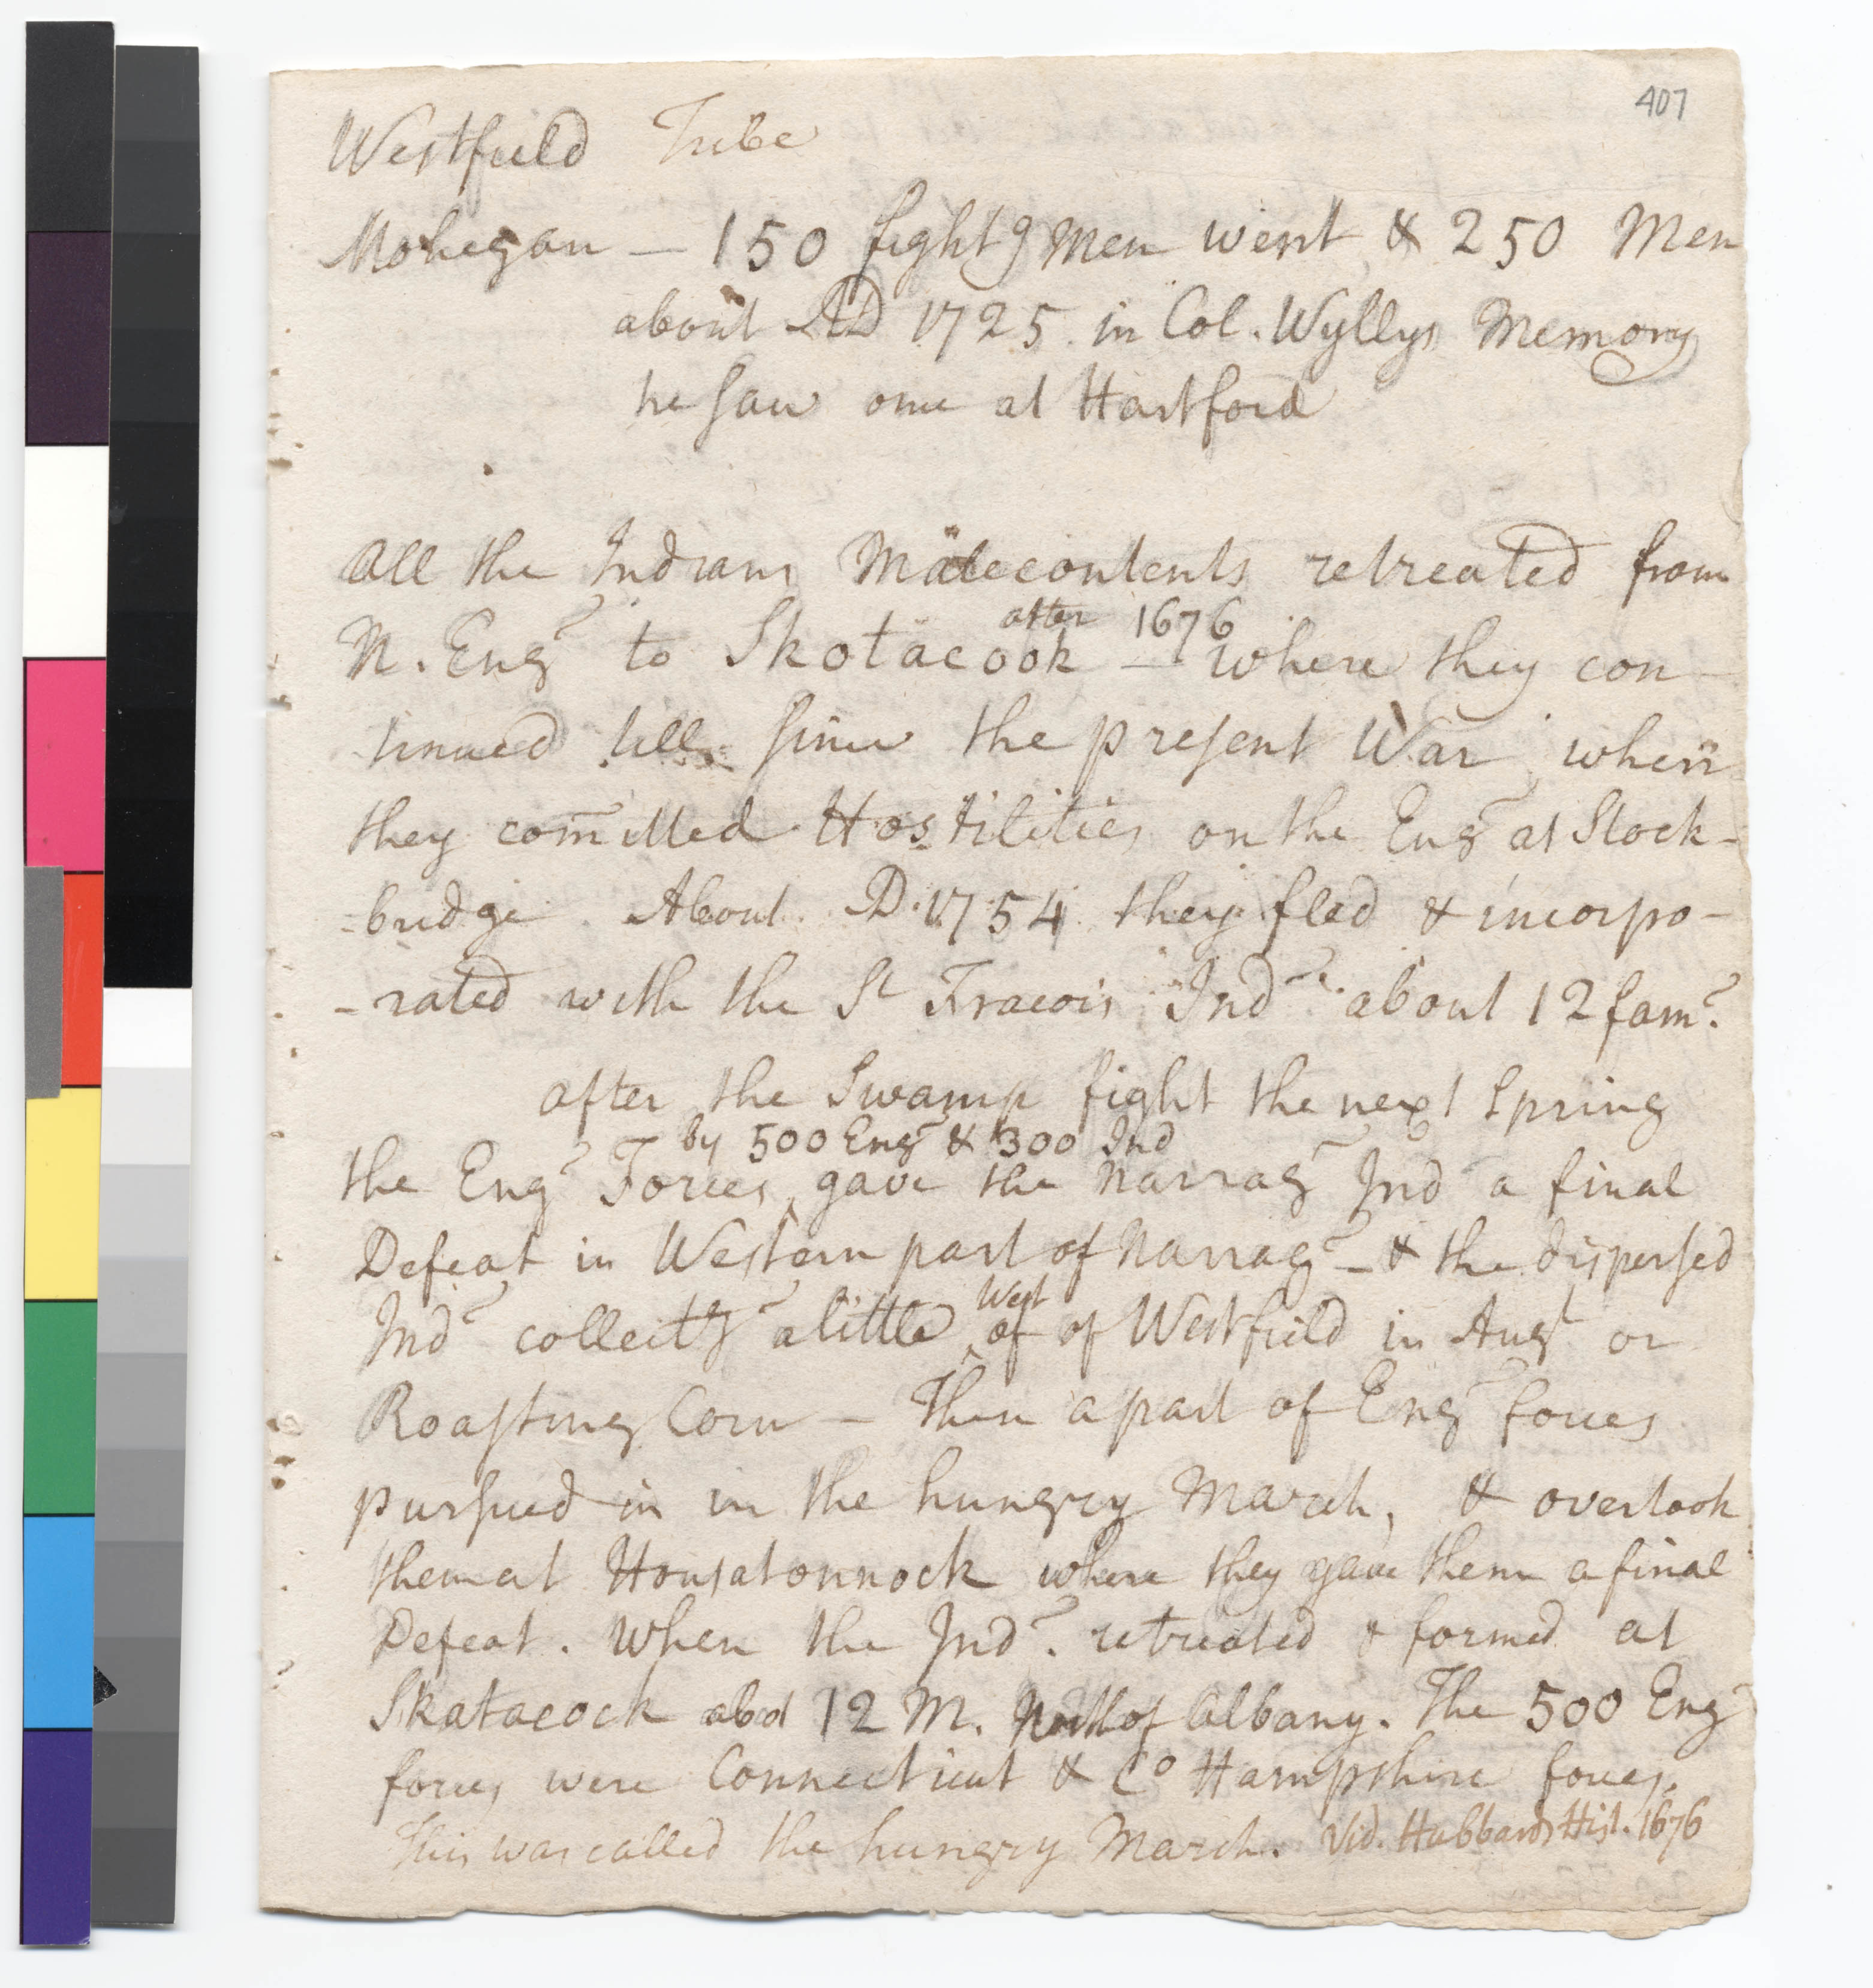 407
Westfield Tribe
Mohegan — 150 fightg Men went & 250 Men
about AD 1725 in Col. Wyllys Memory
he saw one at Hartford
All the Indians Malecontents retreated from
after 1676
N. Eng to Skotacook — where they con-
tinued till since the present War when
they com̄itted Hostilities on the Eng at Stock-
-bridge. About D. 1754 they fled & incorpo-
-rated with the St Fracois Ind about 12 fam.
after the Swamp fight the next Spring
by 500 Eng & 300 Ind
the Eng Forces gave the Narrag Ind a final
Defeat in Western part of Narrag — & the dispersed
West
Ind collectg a little of of Westfield in Augt or
Roasting Corn — Then a part of Eng forces
pursued in in the hungry March, & overtook
them at Housatonnock where they gave them a final
Defeat. When the Ind. retreated & formed at
Skatacock abot 12 M. North of Albany. The 500 Eng
forces were Connecticut & Co Hampshire forces.
This was called the hungry March. Vid. Hubbards Hist. 1676